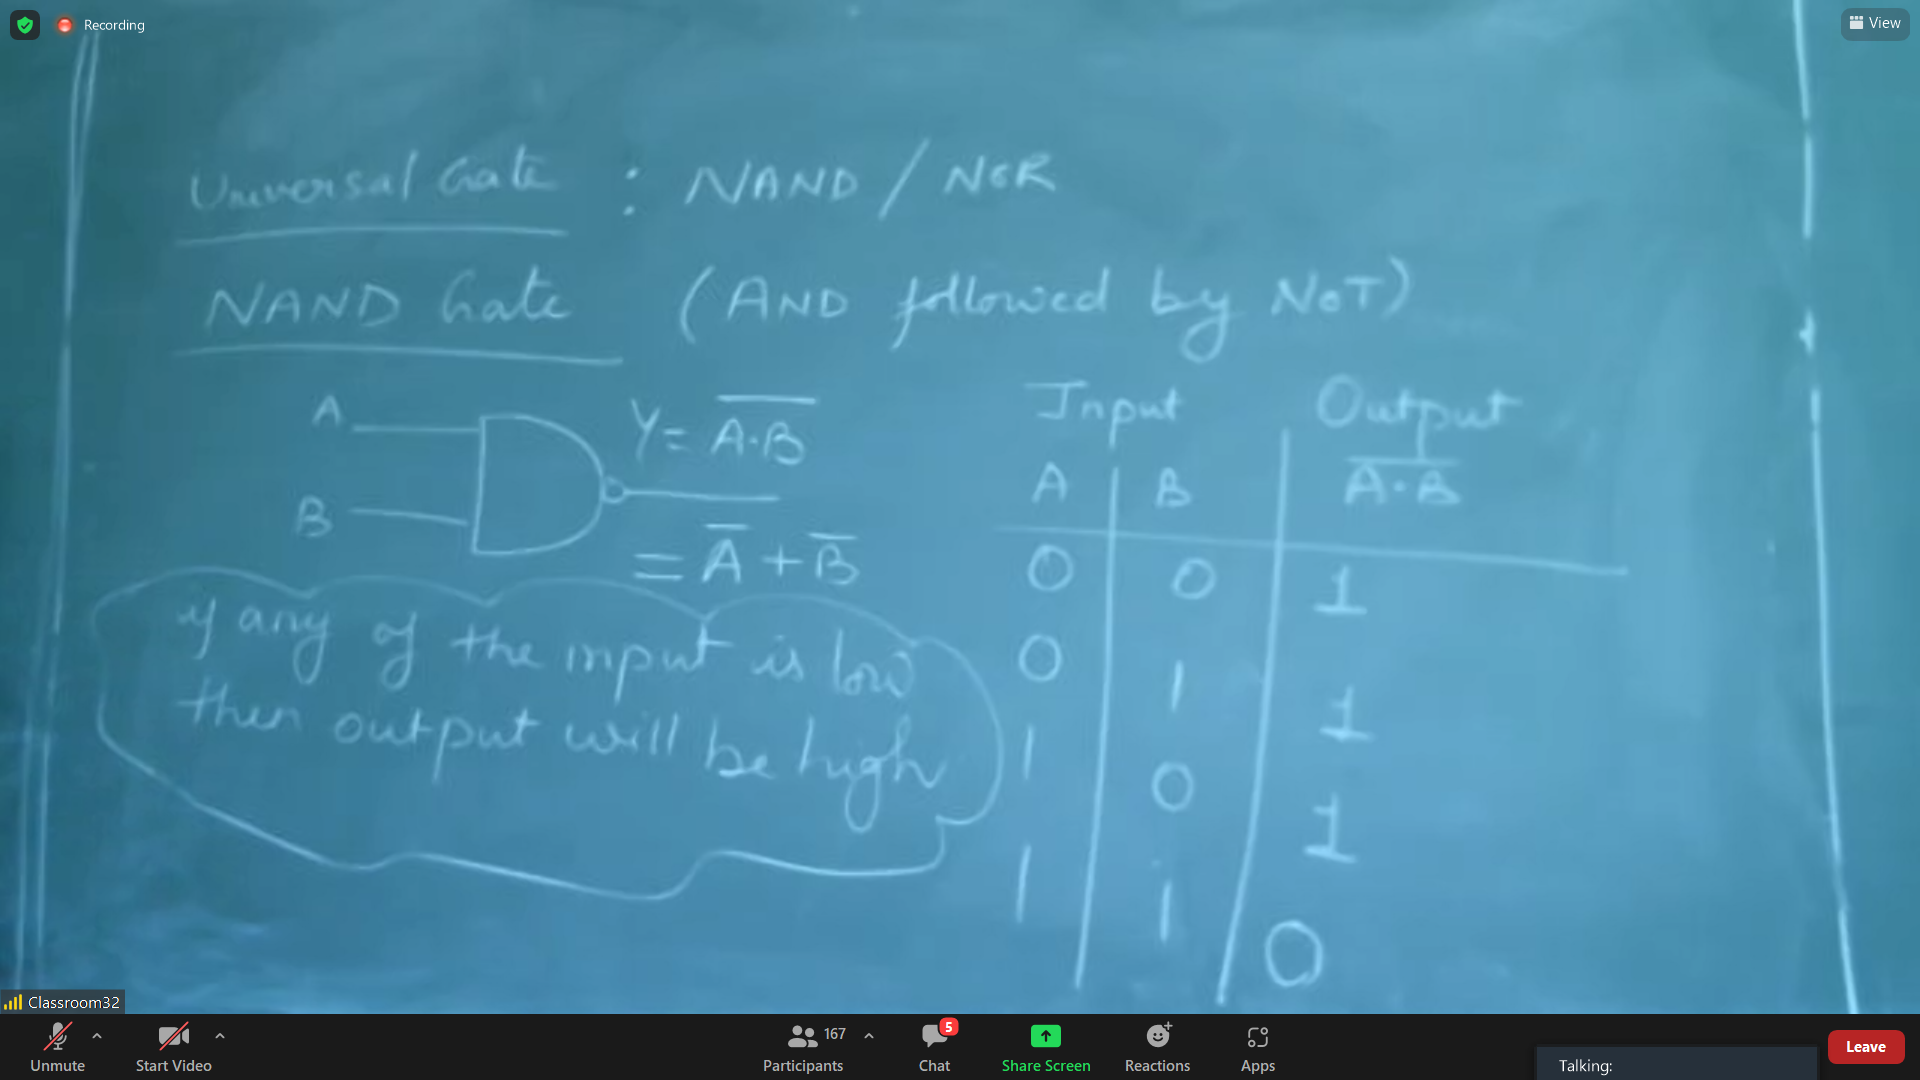 Recording
View
Universal Gate : NAND / NOR
NAND Gate (AND followed by NOT)
A
B
Y = \overline{A·B}
= \overline{A} + \overline{B}
if any of the input is low
then output will be high
Input Output
A B \overline{A·B}
0 0 1
0 1 1
1 0 1
1 1 0
Classroom32
Unmute
Start Video
167
Participants
5
Chat
Share Screen
Reactions
Apps
Talking:
Leave